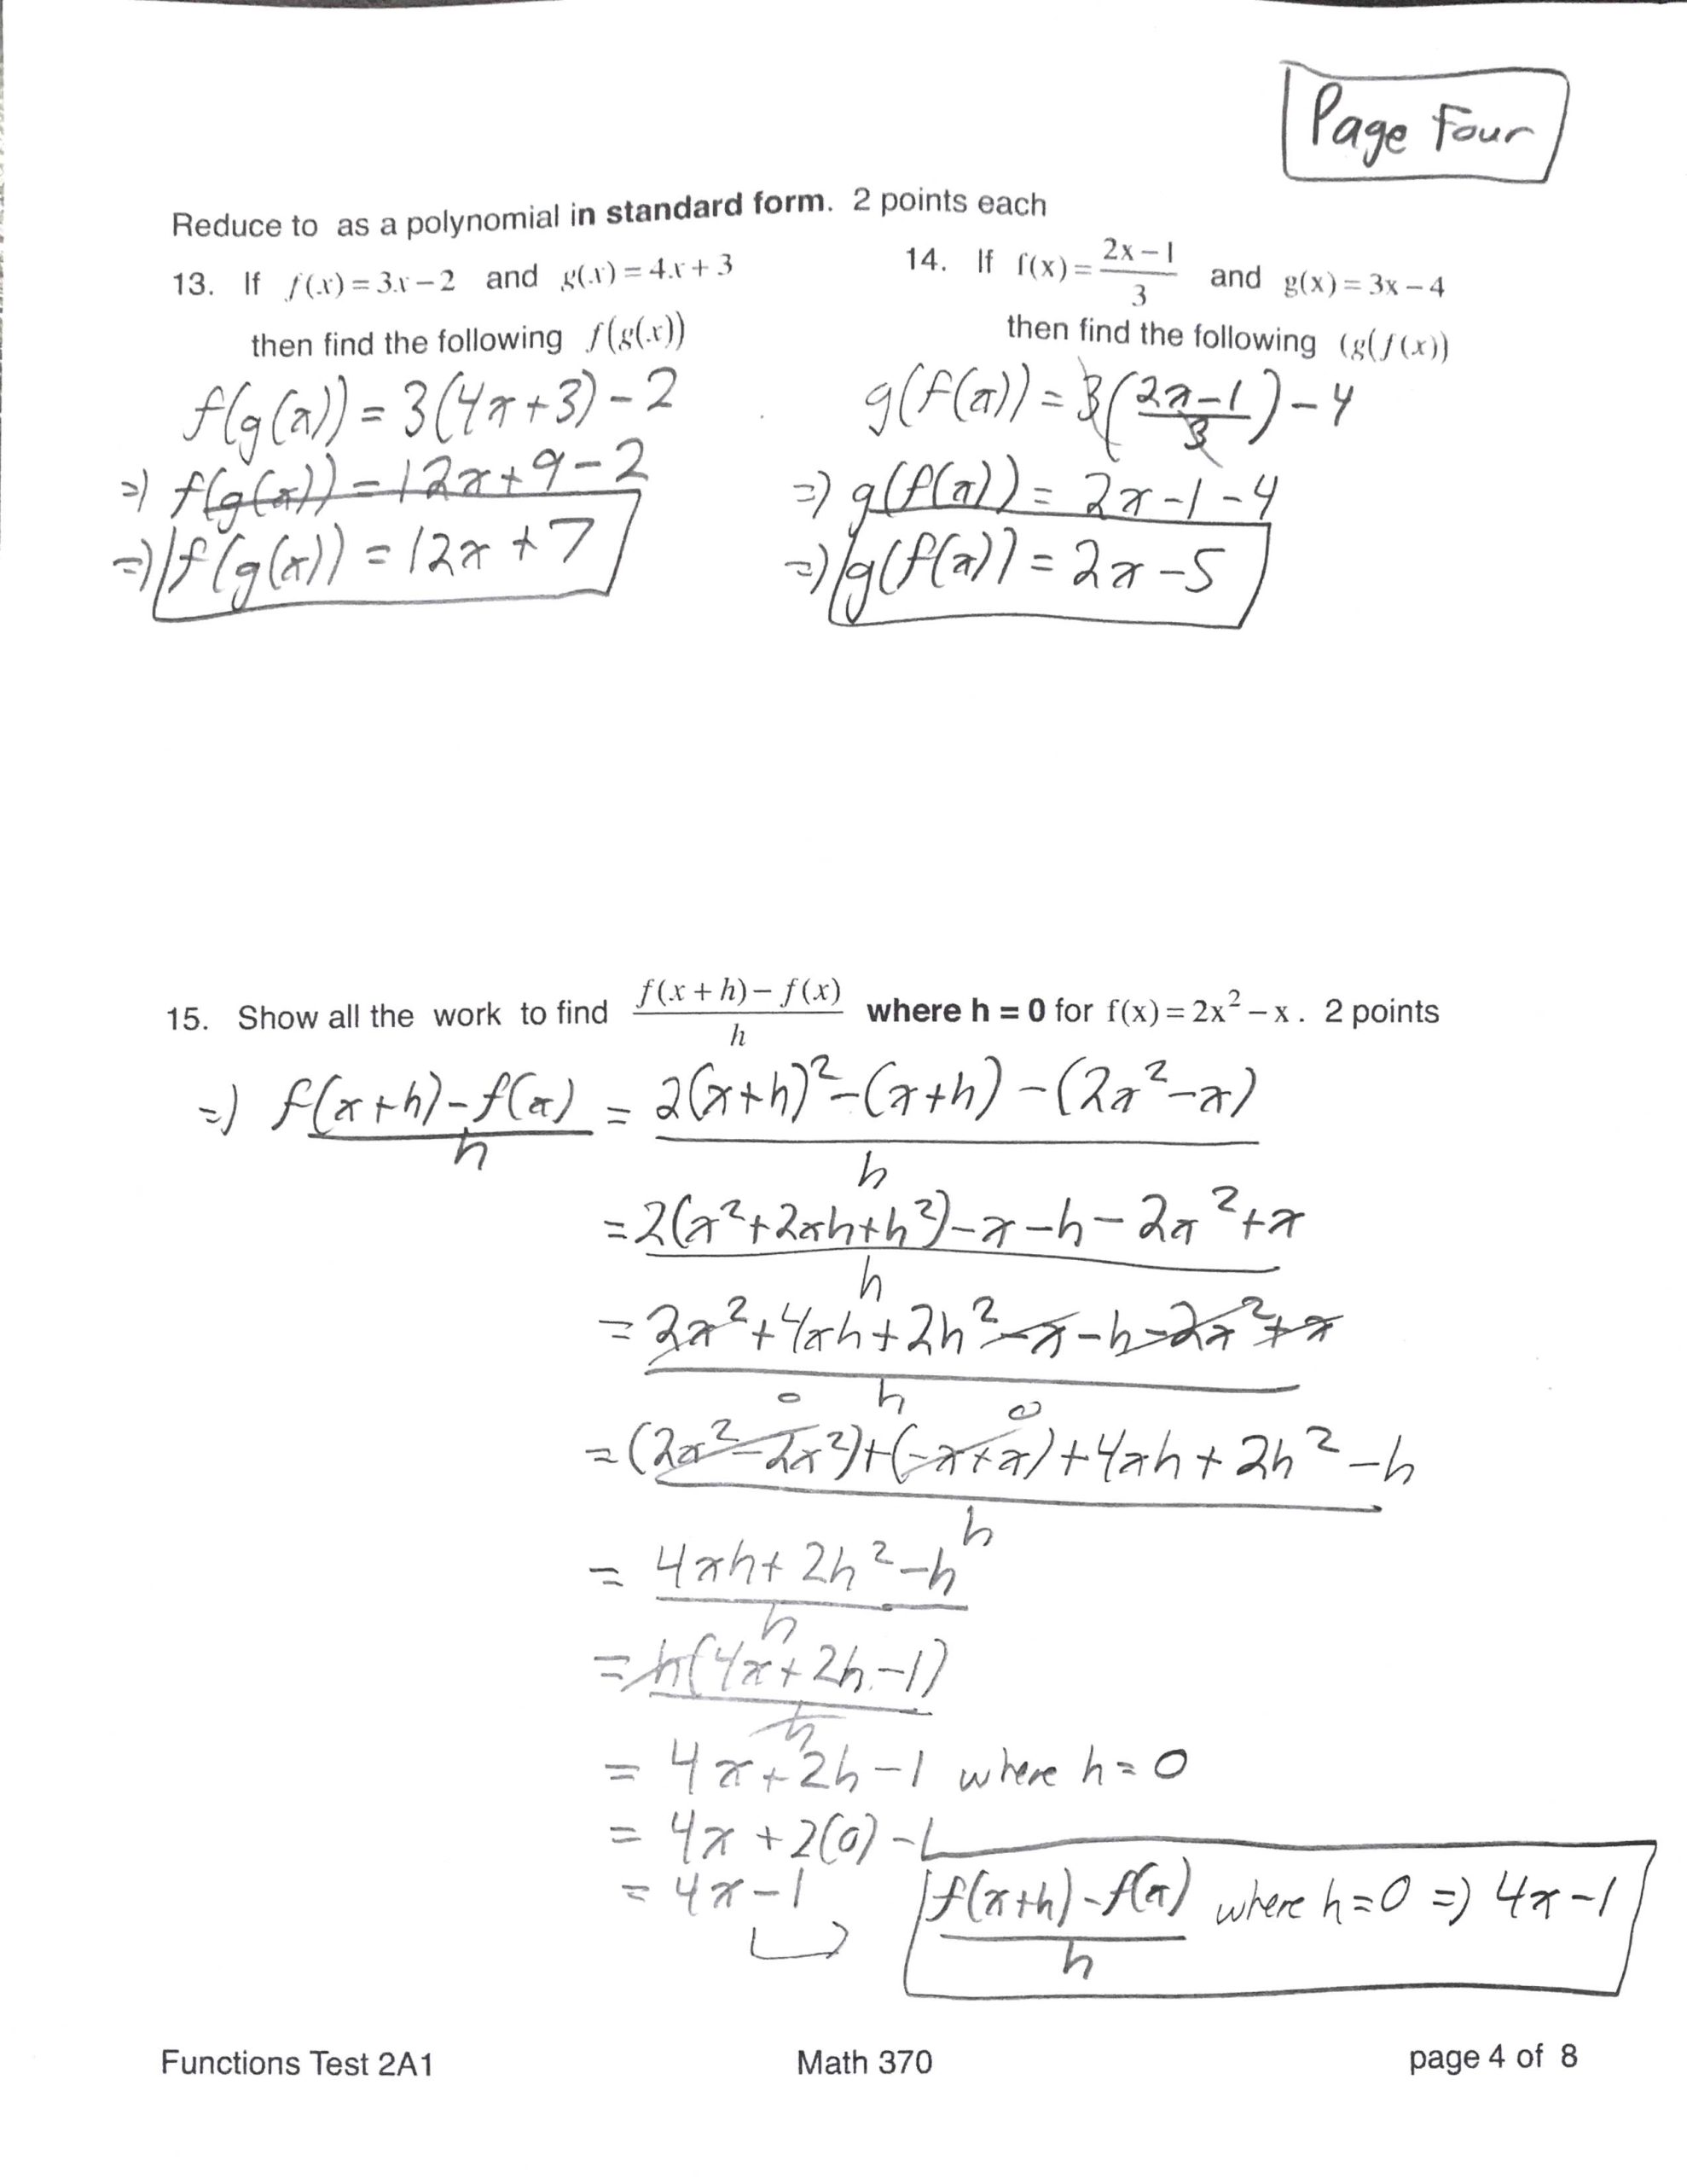 Page Four
Reduce to as a polynomial in standard form. 2 points each
13. If f(x) = 3x − 2 and g(x) = 4x + 3
then find the following f(g(x))
f(g(x)) = 3(4x+3) − 2
=) f(g(x)) = 12x + 9 − 2
=) f(g(x)) = 12x + 7
14. If f(x) = (2x − 1)/3 and g(x) = 3x − 4
then find the following (g(f(x))
g(f(x)) = 3((2x−1)/3) − 4
=) g(f(x)) = 2x − 1 − 4
=) g(f(x)) = 2x − 5
15. Show all the work to find (f(x + h) − f(x))/h where h = 0 for f(x) = 2x² − x. 2 points
=) (f(x+h) − f(x))/h = (2(x+h)² − (x+h) − (2x² − x))/h
= (2(x² + 2xh + h²) − x − h − 2x² + x)/h
= (2x² + 4xh + 2h² − x − h − 2x² + x)/h
0 0
= ((2x² − 2x²) + (−x + x) + 4xh + 2h² − h)/h
= (4xh + 2h² − h)/h
= h(4x + 2h − 1)/h
= 4x + 2h − 1 where h = 0
= 4x + 2(0) − 1
= 4x − 1
(f(x+h) − f(x))/h where h = 0 =) 4x − 1
Functions Test 2A1 Math 370 page 4 of 8